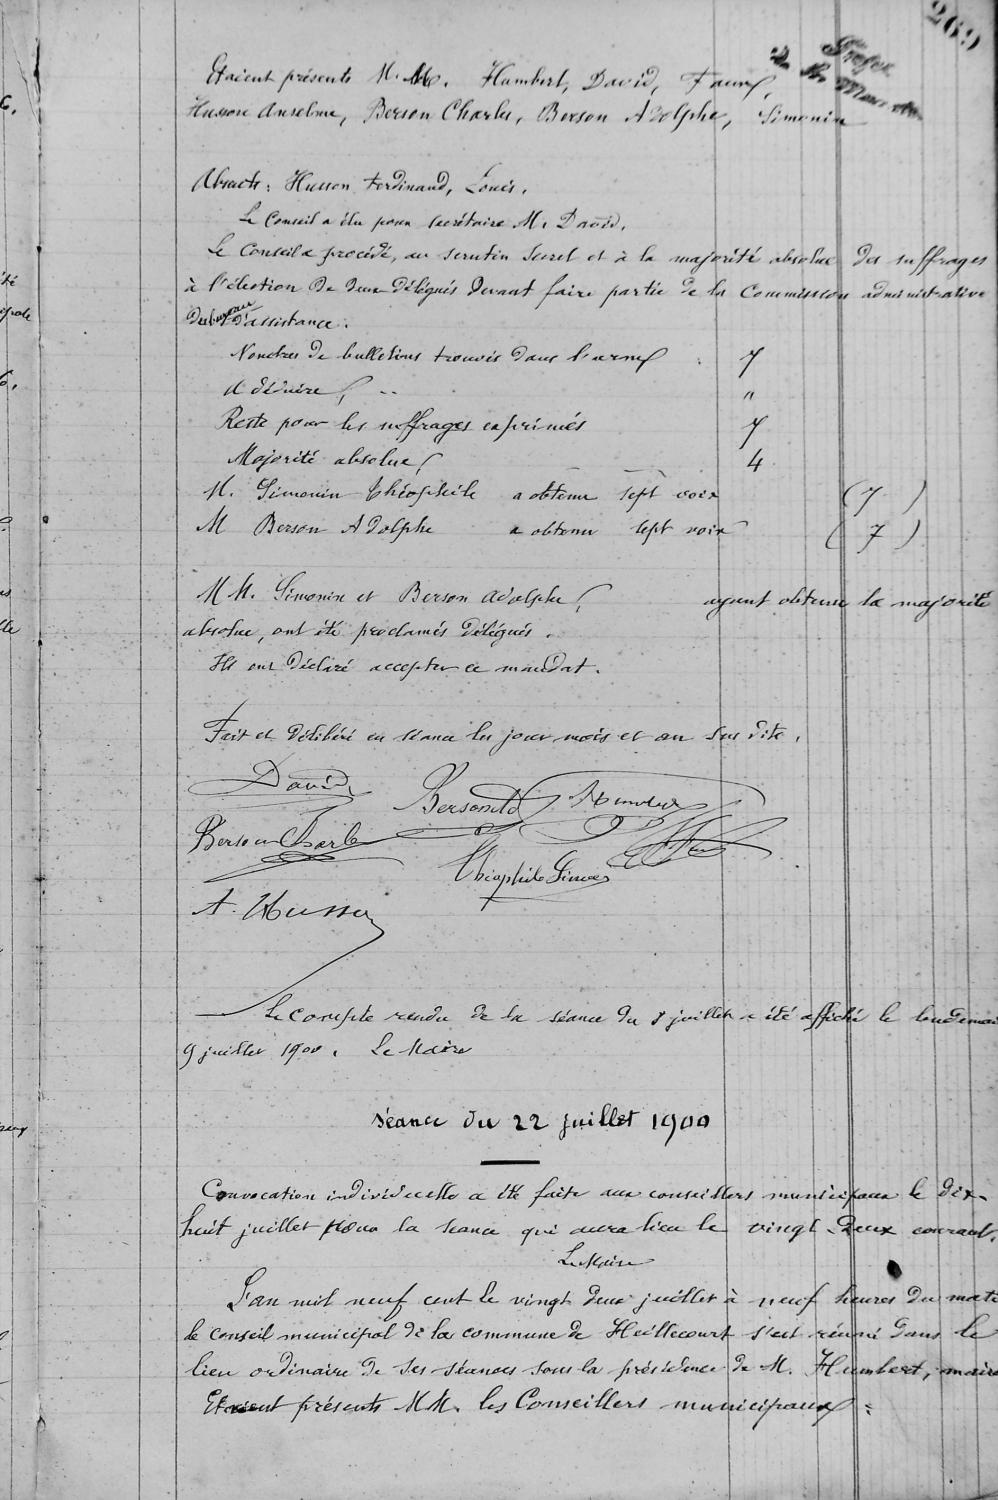 269
Etaient présents M. M. Humbert, David, Faux,
Husson Anselme, Berson Charles, Berson Adolphe, Simonin
Absents : Husson Ferdinand, Louis.
Le Conseil a élu pour secrétaire M. David.
Le Conseil a procédé, au scrutin secret et à la majorité absolue des suffrages
à l'élection de deux délégués devant faire partie de la Commission administrative
du bureau d'assistance.
Nombres de bulletins trouvés dans l'urne 7
A déduire "
Reste pour les suffrages exprimés 7
Majorité absolue 4
M. Simonin Théophile a obtenu sept voix (7)
M Berson Adolphe a obtenu sept voix (7)
MM. Simonin et Berson Adolphe, ayant obtenu la majorité
absolue, ont été proclamés délégués.
Ils ont déclaré accepter ce mandat.
Fait et délibéré en séance les jour mois et an sus dits.
David Berson Humbert
Berson Charles
Théophile Simonin
A. Husson
Le compte rendu de la séance du 8 juillet a été affiché le lendemain
9 juillet 1900. Le Maire
Séance du 22 juillet 1900
Convocation individuelle a été faite aux conseillers municipaux le dix-
huit juillet pour la séance qui aura lieu le vingt-deux courant.
Le Maire
L'an mil neuf cent le vingt deux juillet à neuf heures du mati
le conseil municipal de la commune de Heillecourt s'est réuni dans le
lieu ordinaire de ses séances sous la présidence de M. Humbert, maire
Etaient présents MM. les Conseillers municipaux :